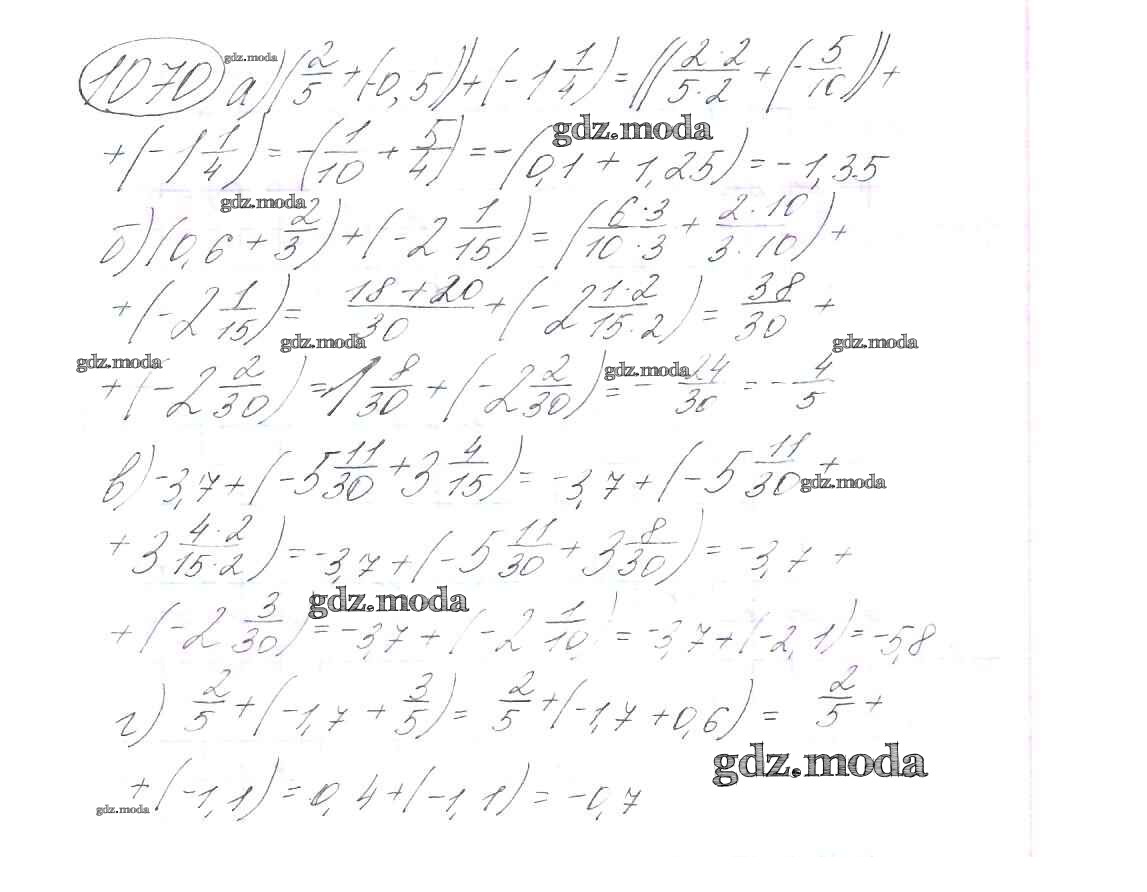 1070 а) (2/5 + (-0,5)) + (-1 1/4) = ((2·2)/(5·2) + (-5/10)) +
gdz.moda
+ (-1 1/4) = -(1/10 + 5/4) = -(0,1 + 1,25) = -1,35
gdz.moda
gdz.moda
б) (0,6 + 2/3) + (-2 1/15) = ((6·3)/(10·3) + (2·10)/(3·10)) +
+ (-2 1/15) = (18+20)/30 + (-2 (1·2)/(15·2)) = 38/30 +
gdz.moda gdz.moda gdz.moda gdz.moda
+ (-2 2/30) = 1 8/30 + (-2 2/30) = -24/30 = -4/5
в) -3,7 + (-5 11/30 + 3 4/15) = -3,7 + (-5 11/30 +
gdz.moda
+ 3 (4·2)/(15·2)) = -3,7 + (-5 11/30 + 3 8/30) = -3,7 +
gdz.moda
+ (-2 3/30) = -3,7 + (-2 1/10) = -3,7 + (-2,1) = -5,8
г) 2/5 + (-1,7 + 3/5) = 2/5 + (-1,7 + 0,6) = 2/5 +
gdz.moda
+ (-1,1) = 0,4 + (-1,1) = -0,7
gdz.moda